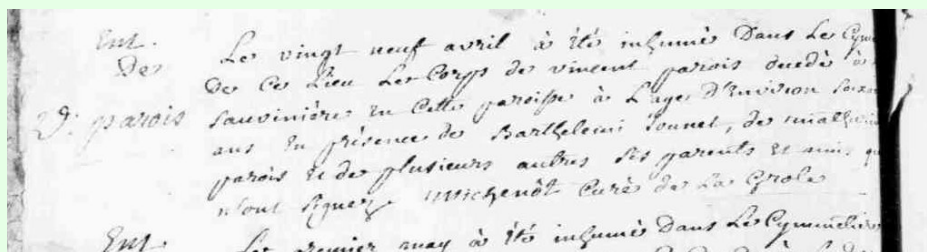 Ent. Le vingt neuf avril à été inhumé Dans Le Cyme
De de Ce Lieu Le Corps de vincent parois decedé à
V. parois sauvinière en Cette paroisse à L'age D'Environ soixan
ans En présence de Barthelemi Jonnet, de
parois et de plusieurs autres ses parents et amis qu
n'ont signez Michenôt Curé de La Grole
Ent. Le premier may à été inhumé Dans Le Cymmetiere